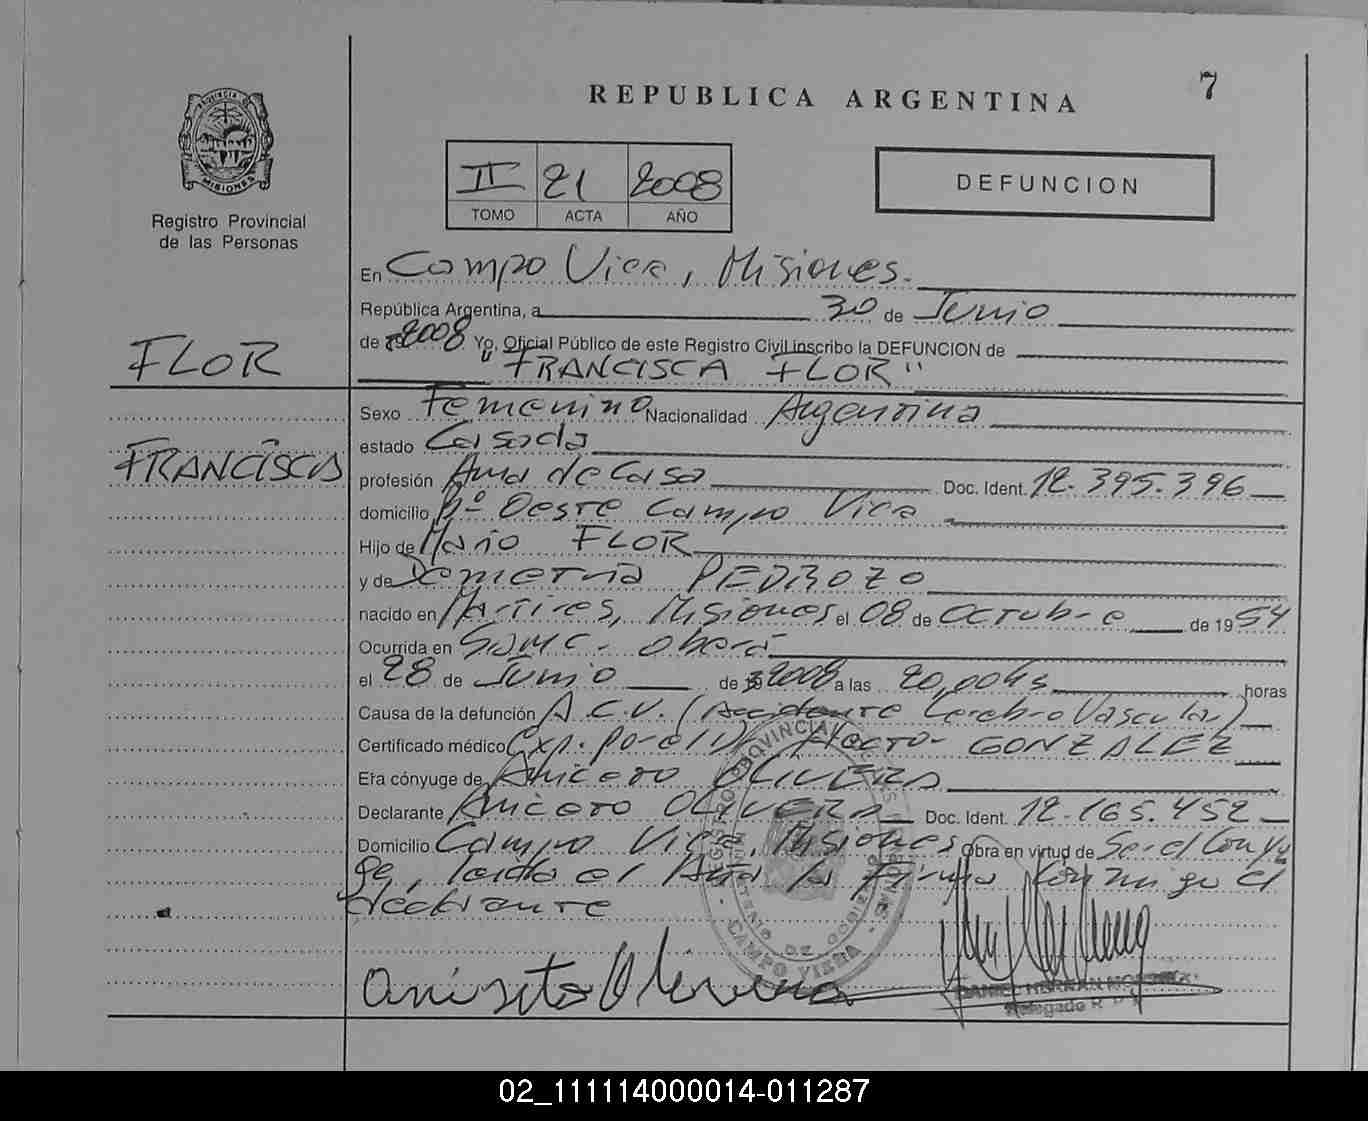 7
REPUBLICA ARGENTINA
PROVINCIA DE
MISIONES
Registro Provincial
de las Personas
II 21 2008
TOMO ACTA AÑO
DEFUNCION
En Campo Viera, Misiones.
República Argentina, a 30 de Junio
de 2008 Yo, Oficial Público de este Registro Civil inscribo la DEFUNCION de
FLOR
"FRANCISCA FLOR"
Sexo Femenino Nacionalidad Argentina
estado Casada
FRANCISCA
profesión Ama de Casa Doc. Ident. 12.395.396
domicilio Oeste Campo Viera
Hijo de Mario FLOR
y de Demetria PEDROZO
nacido en Martires, Misiones el 08 de Octubre de 1954
Ocurrida en SAMIC - Oberá
el 28 de Junio de 2008 a las 20,00Hs horas
Causa de la defunción A.C.V. (Accidente Cerebro Vascular)
Certificado médico Exp. por el Dr Hector GONZALEZ
Era cónyuge de Aniceto OLIVERA
Declarante Aniceto OLIVERA Doc. Ident. 12.165.452
Domicilio Campo Viera, Misiones Obra en virtud de Ser el Conyu
ge, leida el Acta la Firma Conmigo el
declarante
REGISTRO PROVINCIAL DE LAS PERSONAS
MINISTERIO DE GOBIERNO
- CAMPO VIERA -
aniseto Olivera
DANIEL HERNAN
Delegado R. P.
02_111114000014-011287